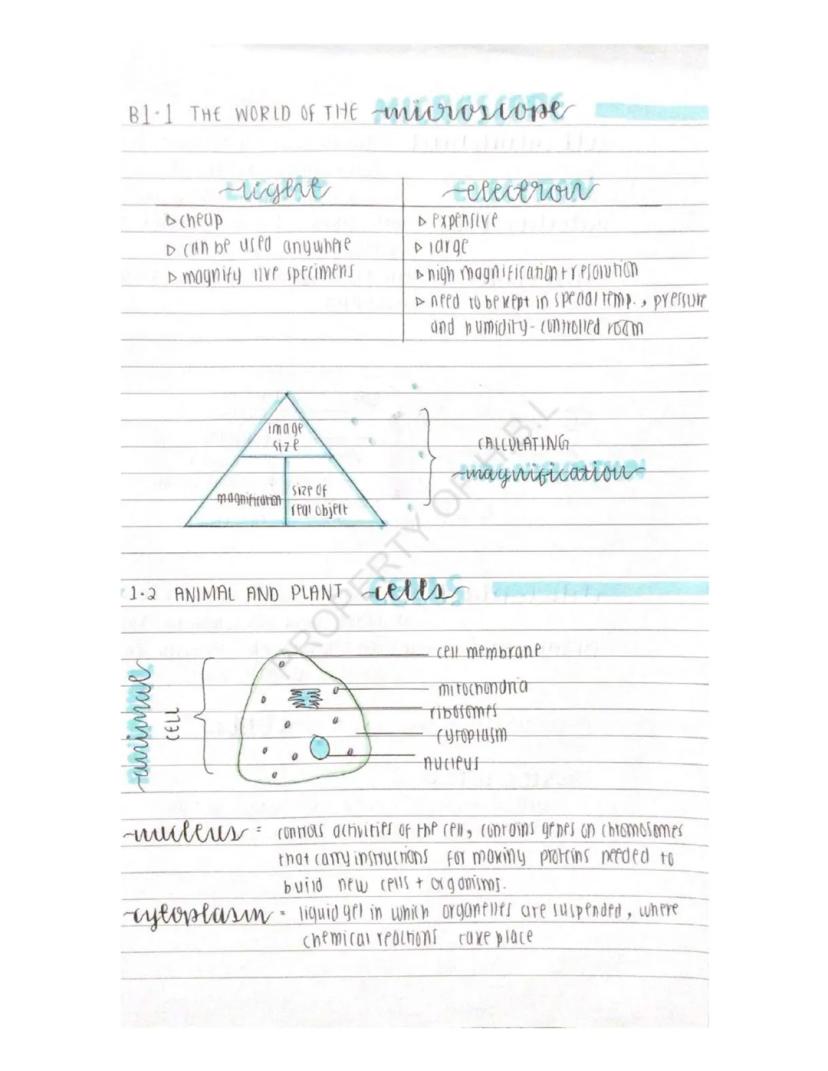 B1.1 THE WORLD OF THE microscope
light
electron
▷ cheap
▷ can be used anywhere
▷ magnify live specimens
▷ expensive
▷ large
▷ high magnification + resolution
▷ need to be kept in special temp., pressure
and humidity-controlled room
image
size
magnification
size of
real object
CALCULATING
magnification
1.2 ANIMAL AND PLANT cells
animal
CELL
cell membrane
mitochondria
ribosomes
cytoplasm
nucleus
nucleus = controls activities of the cell, contains genes on chromosomes
that carry instructions for making proteins needed to
build new cells + organisms.
cytoplasm = liquid gel in which organelles are suspended, where
chemical reactions take place
PROPERTY OF H.B.L